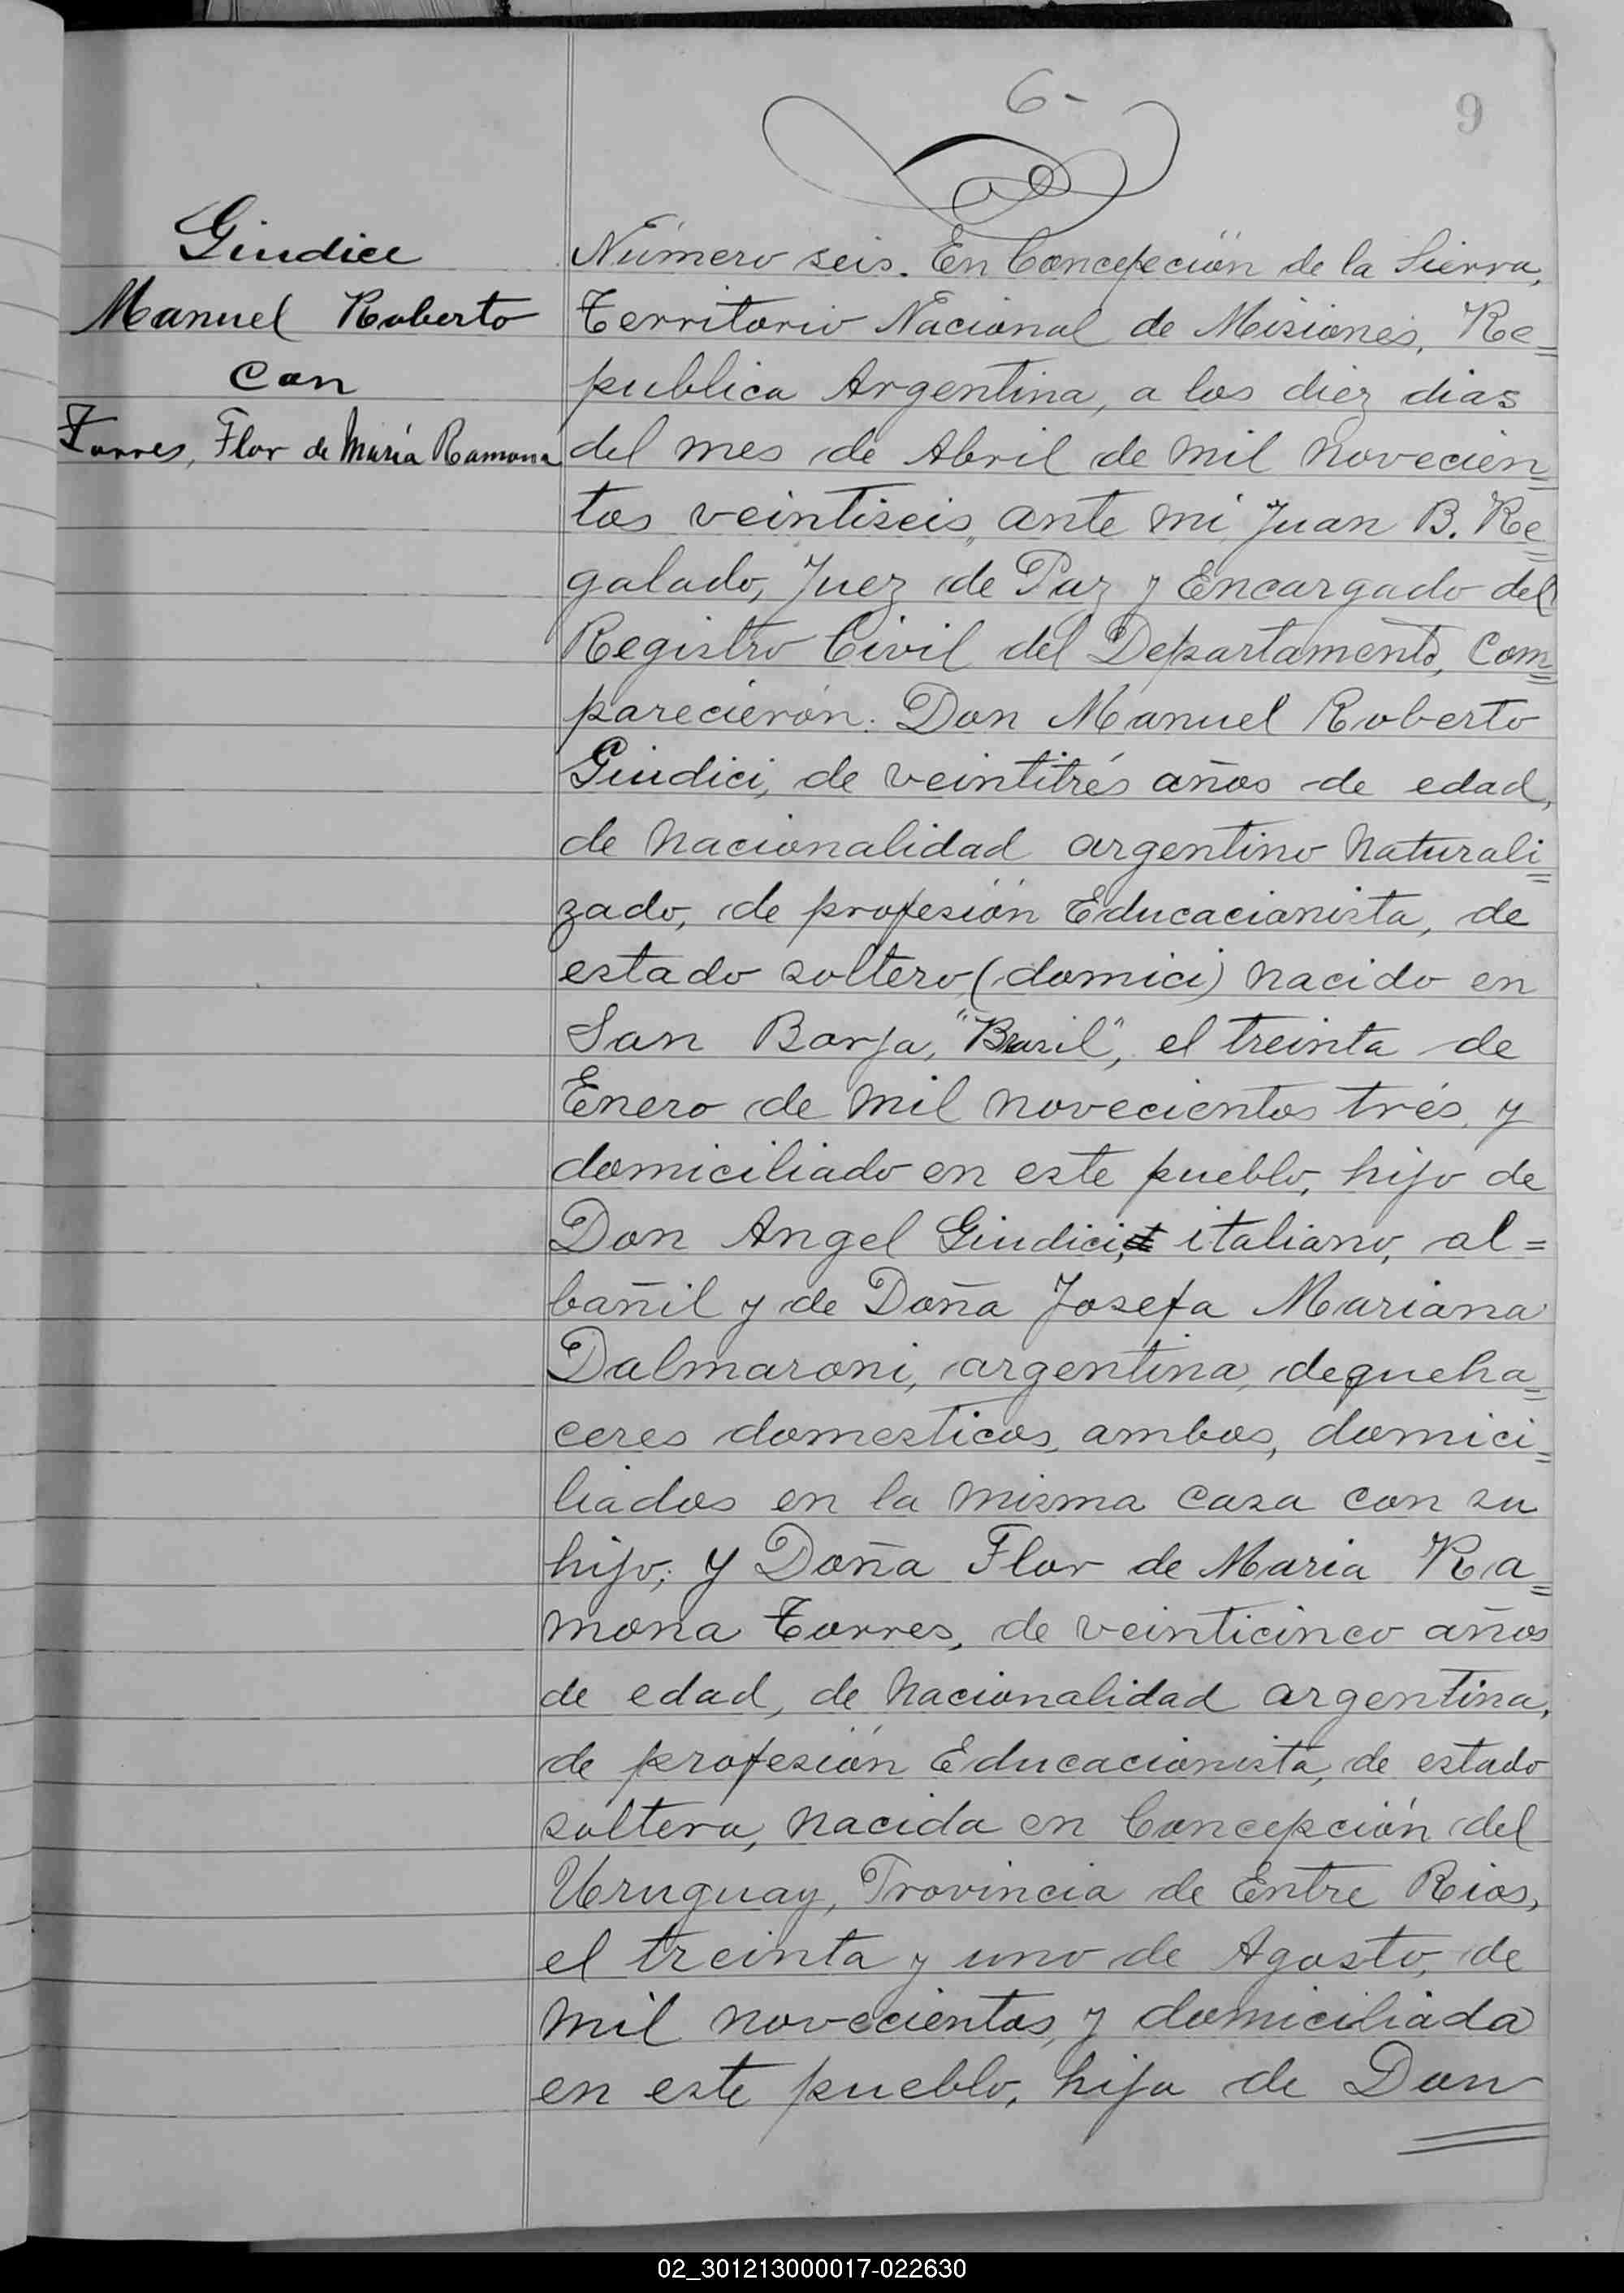 6-
9
Giudice
Manuel Roberto
con
Torres, Flor de María Ramona
Número seis. En Concepción de la Sierra,
Territorio Nacional de Misiones, Re=
publica Argentina, a los diez dias
del mes de Abril de mil novecien=
tos veintiseis, ante mi Juan B. Re=
galado, Juez de Paz y Encargado del
Registro Civil del Departamento, com=
parecierón: Don Manuel Roberto
Giudici, de veintitrés años de edad,
de nacionalidad argentino naturali=
zado, de profesión Educacionista, de
estado soltero (domici) nacido en
San Borja, "Brasil", el treinta de
Enero de mil novecientos trés y
domiciliado en este pueblo, hijo de
Don Angel Giudici, italiano, al=
bañil y de Doña Josefa Mariana
Dalmaroni, argentina, de queha=
ceres domesticos, ambos, domici=
liados en la misma casa con su
hijo; y Doña Flor de Maria Ra=
mona Torres, de veinticinco años
de edad, de nacionalidad argentina,
de profesión Educacionista, de estado
soltera, nacida en Concepción del
Uruguay, Provincia de Entre Rios,
el treinta y uno de Agosto, de
mil novecientos, y domiciliada
en este pueblo, hija de Don
02_301213000017-022630